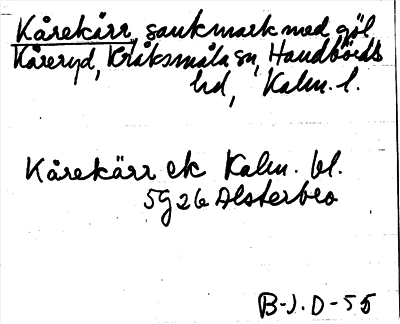 Kårekärr, sankmark med göl
Kåreryd, Kråksmåla sn, Handbörds
hd, Kalm. l.
Kårekärr ek Kalm. bl.
5g 26 Alsterbro
B-J.D-55